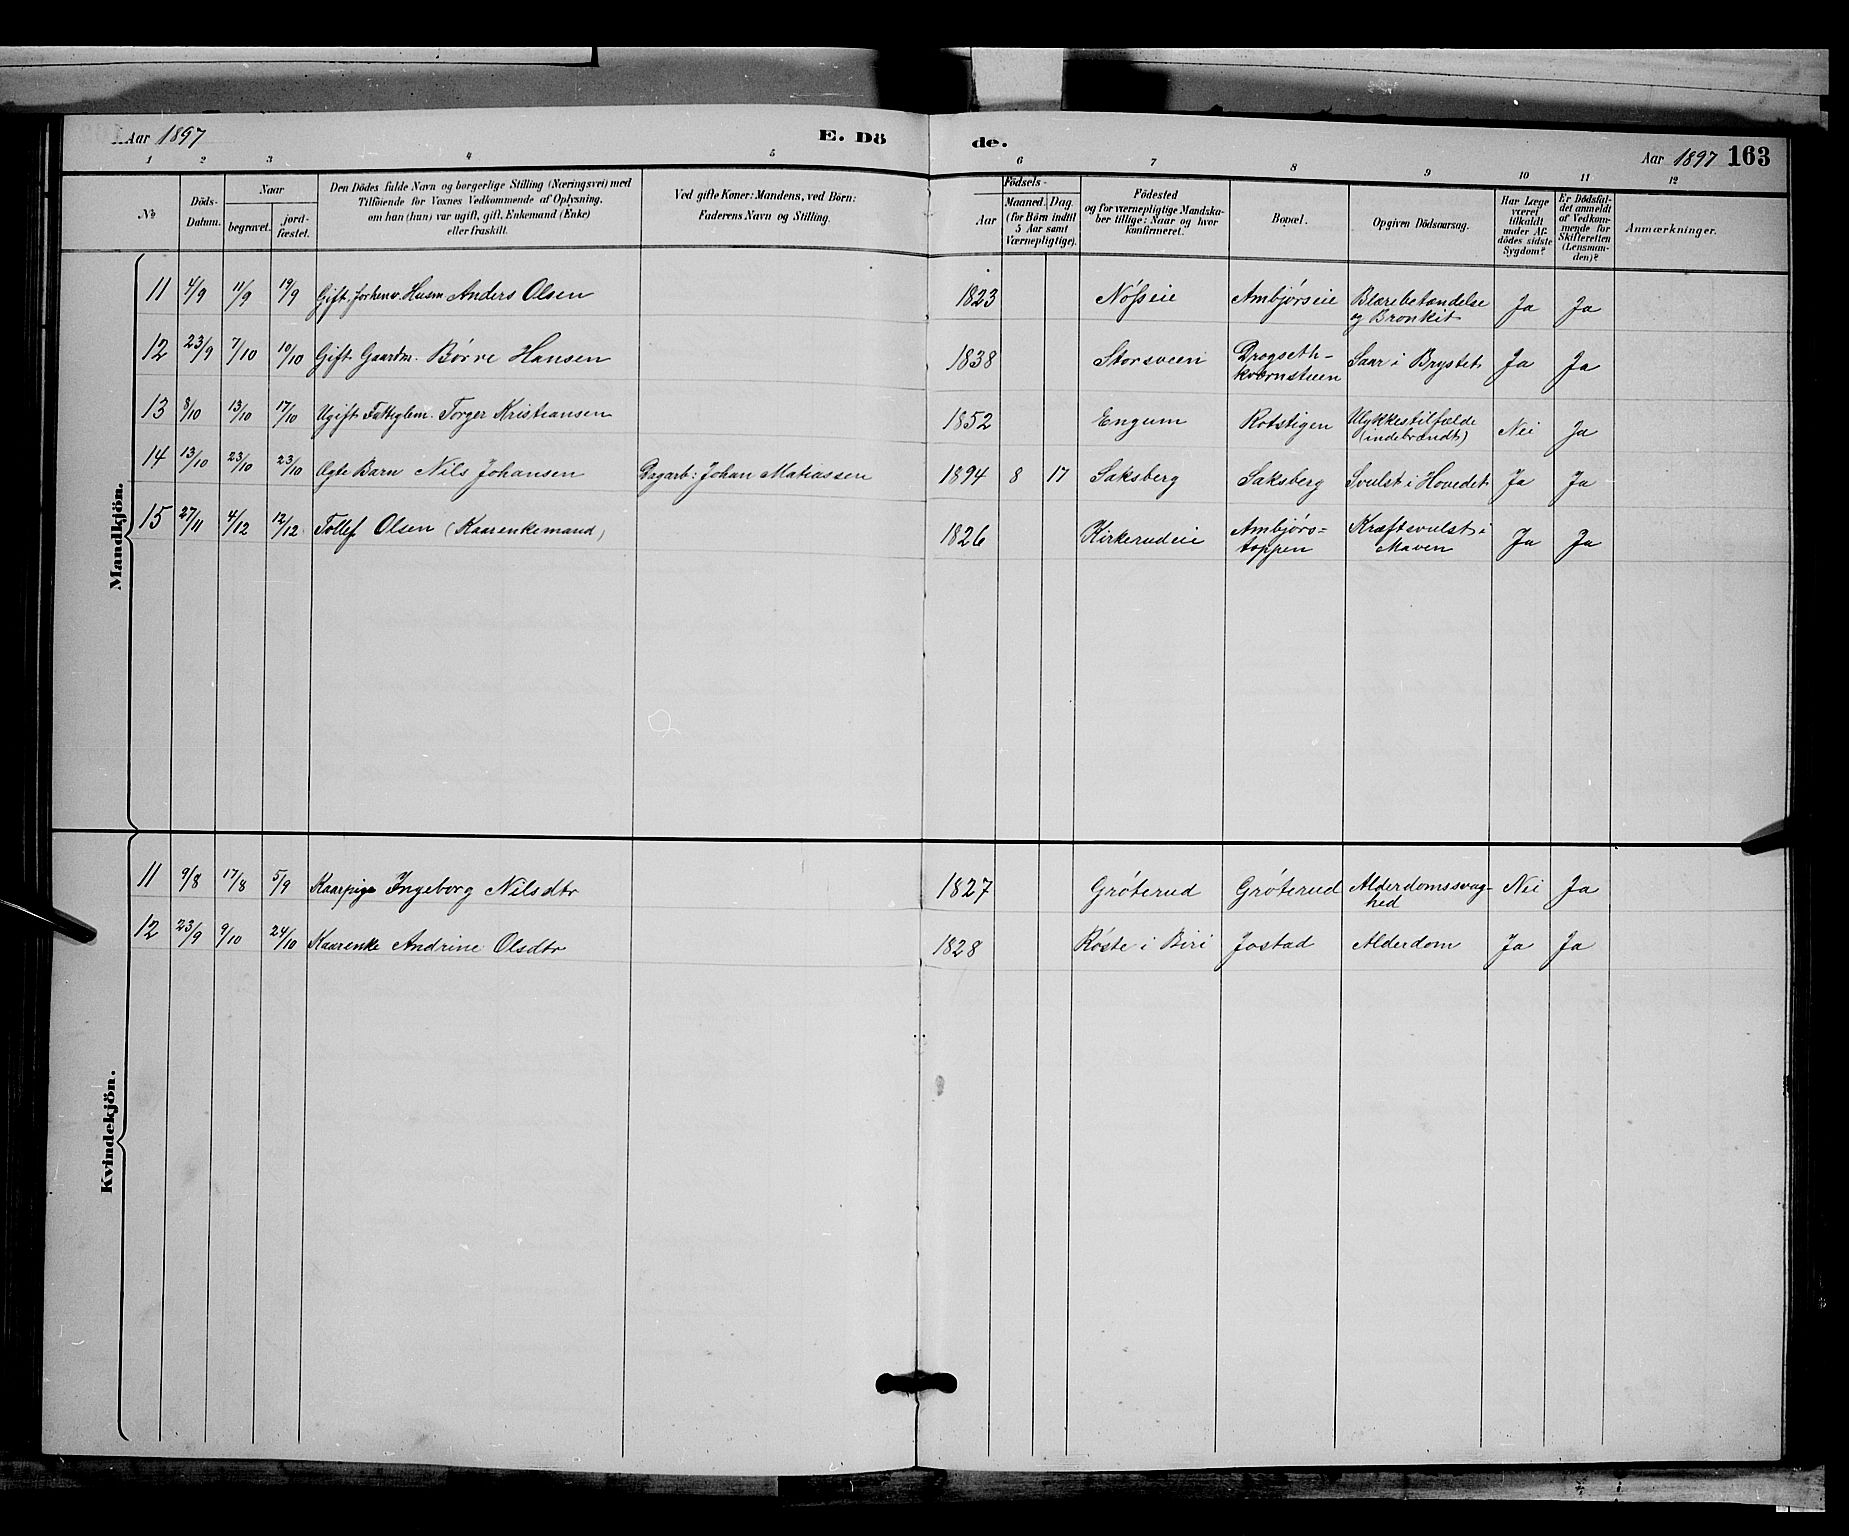 Aar 1897
E. Dö
de.
Aar 1897 163
1 2 3 4 5 6 7 8 9 10 11 12
No
Döds-Datum.
Naar
begravet.
jord-fæstet.
Den Dödes fulde Navn og borgerlige Stilling (Næringsvei) med
Tilföiende for Voxnes Vedkommende af Oplysning,
om han (hun) var ugift, gift, Enkemand (Enke)
eller fraskilt.
Ved gifte Koner: Mandens, ved Börn:
Faderens Navn og Stilling.
Födsels-
Aar
Maaned. Dag.
(for Börn indtil
5 Aar samt
Værnepligtige).
Födested
og for værnepligtige Mandska-
ber tillige: Naar og hvor
konfirmeret.
Bopæl.
Opgiven Dödsaarsag.
Har Læge
været
tilkaldt
under Af-
dödes sidste
Sygdom?
Er Dödsfal-
det anmeldt
af Vedkom-
mende for
Skifteretten
(Lensman-
den)?
Anmærkninger.
Mandkjön.
11 4/9 11/9 19/9 Gift forhenv. Husm Anders Olsen 1823 Nøsseie Ambjørseie Blærebetændelse og Bronkit Ja Ja
12 23/9 7/10 10/10 Gift Gaardm. Børre Hansen 1838 Storsveen Drogseth-kvernstuen Saar i Brystet Ja Ja
13 8/10 13/10 17/10 Ugift Fattiglem. Torger Kristiansen 1852 Engum Rotstigen Ulykkestilfælde (indebrændt) Nei Ja
14 13/10 23/10 23/10 Ægte Barn Nils Johansen Dagarb: Johan Matiassen 1894 8 17 Saksberg Saksberg Svulst i Hovedet Ja Ja
15 27/11 4/12 12/12 Tollef Olsen (Kaarenkemand) 1826 Kirkerudeie Ambjørs-toppen Kræftsvulst i Maven Ja Ja
Kvindekjön.
11 9/8 17/8 5/9 Kaarpige Ingeborg Nilsdtr 1827 Grøterud Grøterud Alderdomssvag-hed Nei Ja
12 23/9 9/10 24/10 Kaarenke Andrine Olsdtr 1828 Røste i Biri Jostad Alderdom Ja Ja